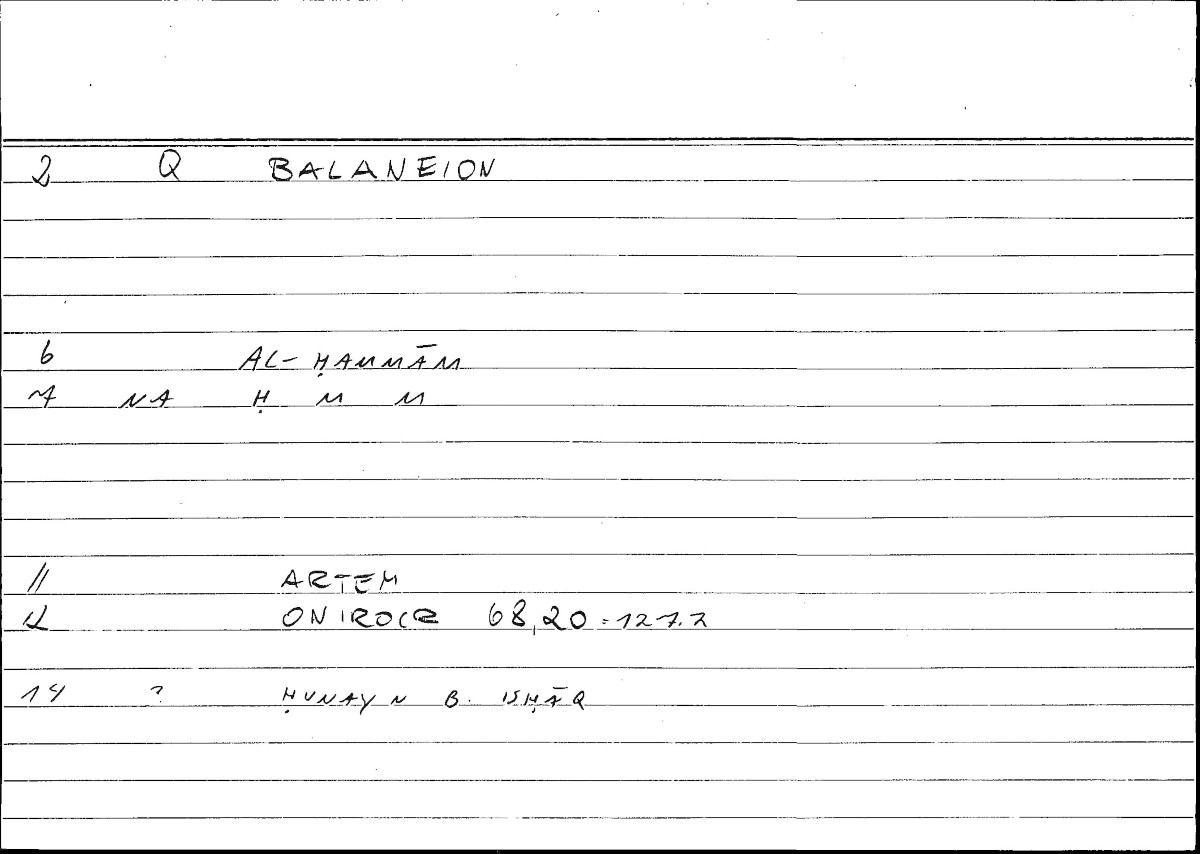 2 Q BALANEION
6 AL-ḤAMMĀM
7 NA Ḥ M M
11 ARTEM
12 ONIROCR 68,20 = 127.2
14 ? ḤUNAYN B. ISḤĀQ